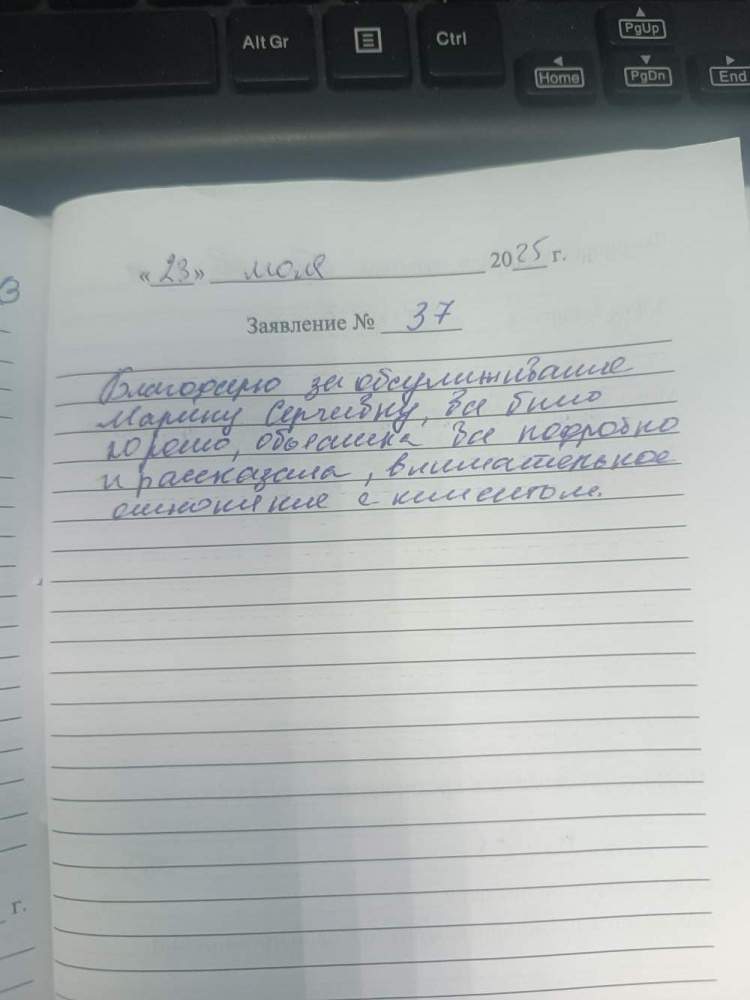 Alt Gr
Ctrl
PgUp
Home
PgDn
End
«23» июля 2025 г.
Заявление № 37
Благодарю за обслуживание
Марину Сергеевну, все было
хорошо, объяснила все подробно
и рассказала, внимательное
отношение с клиентом.
г.